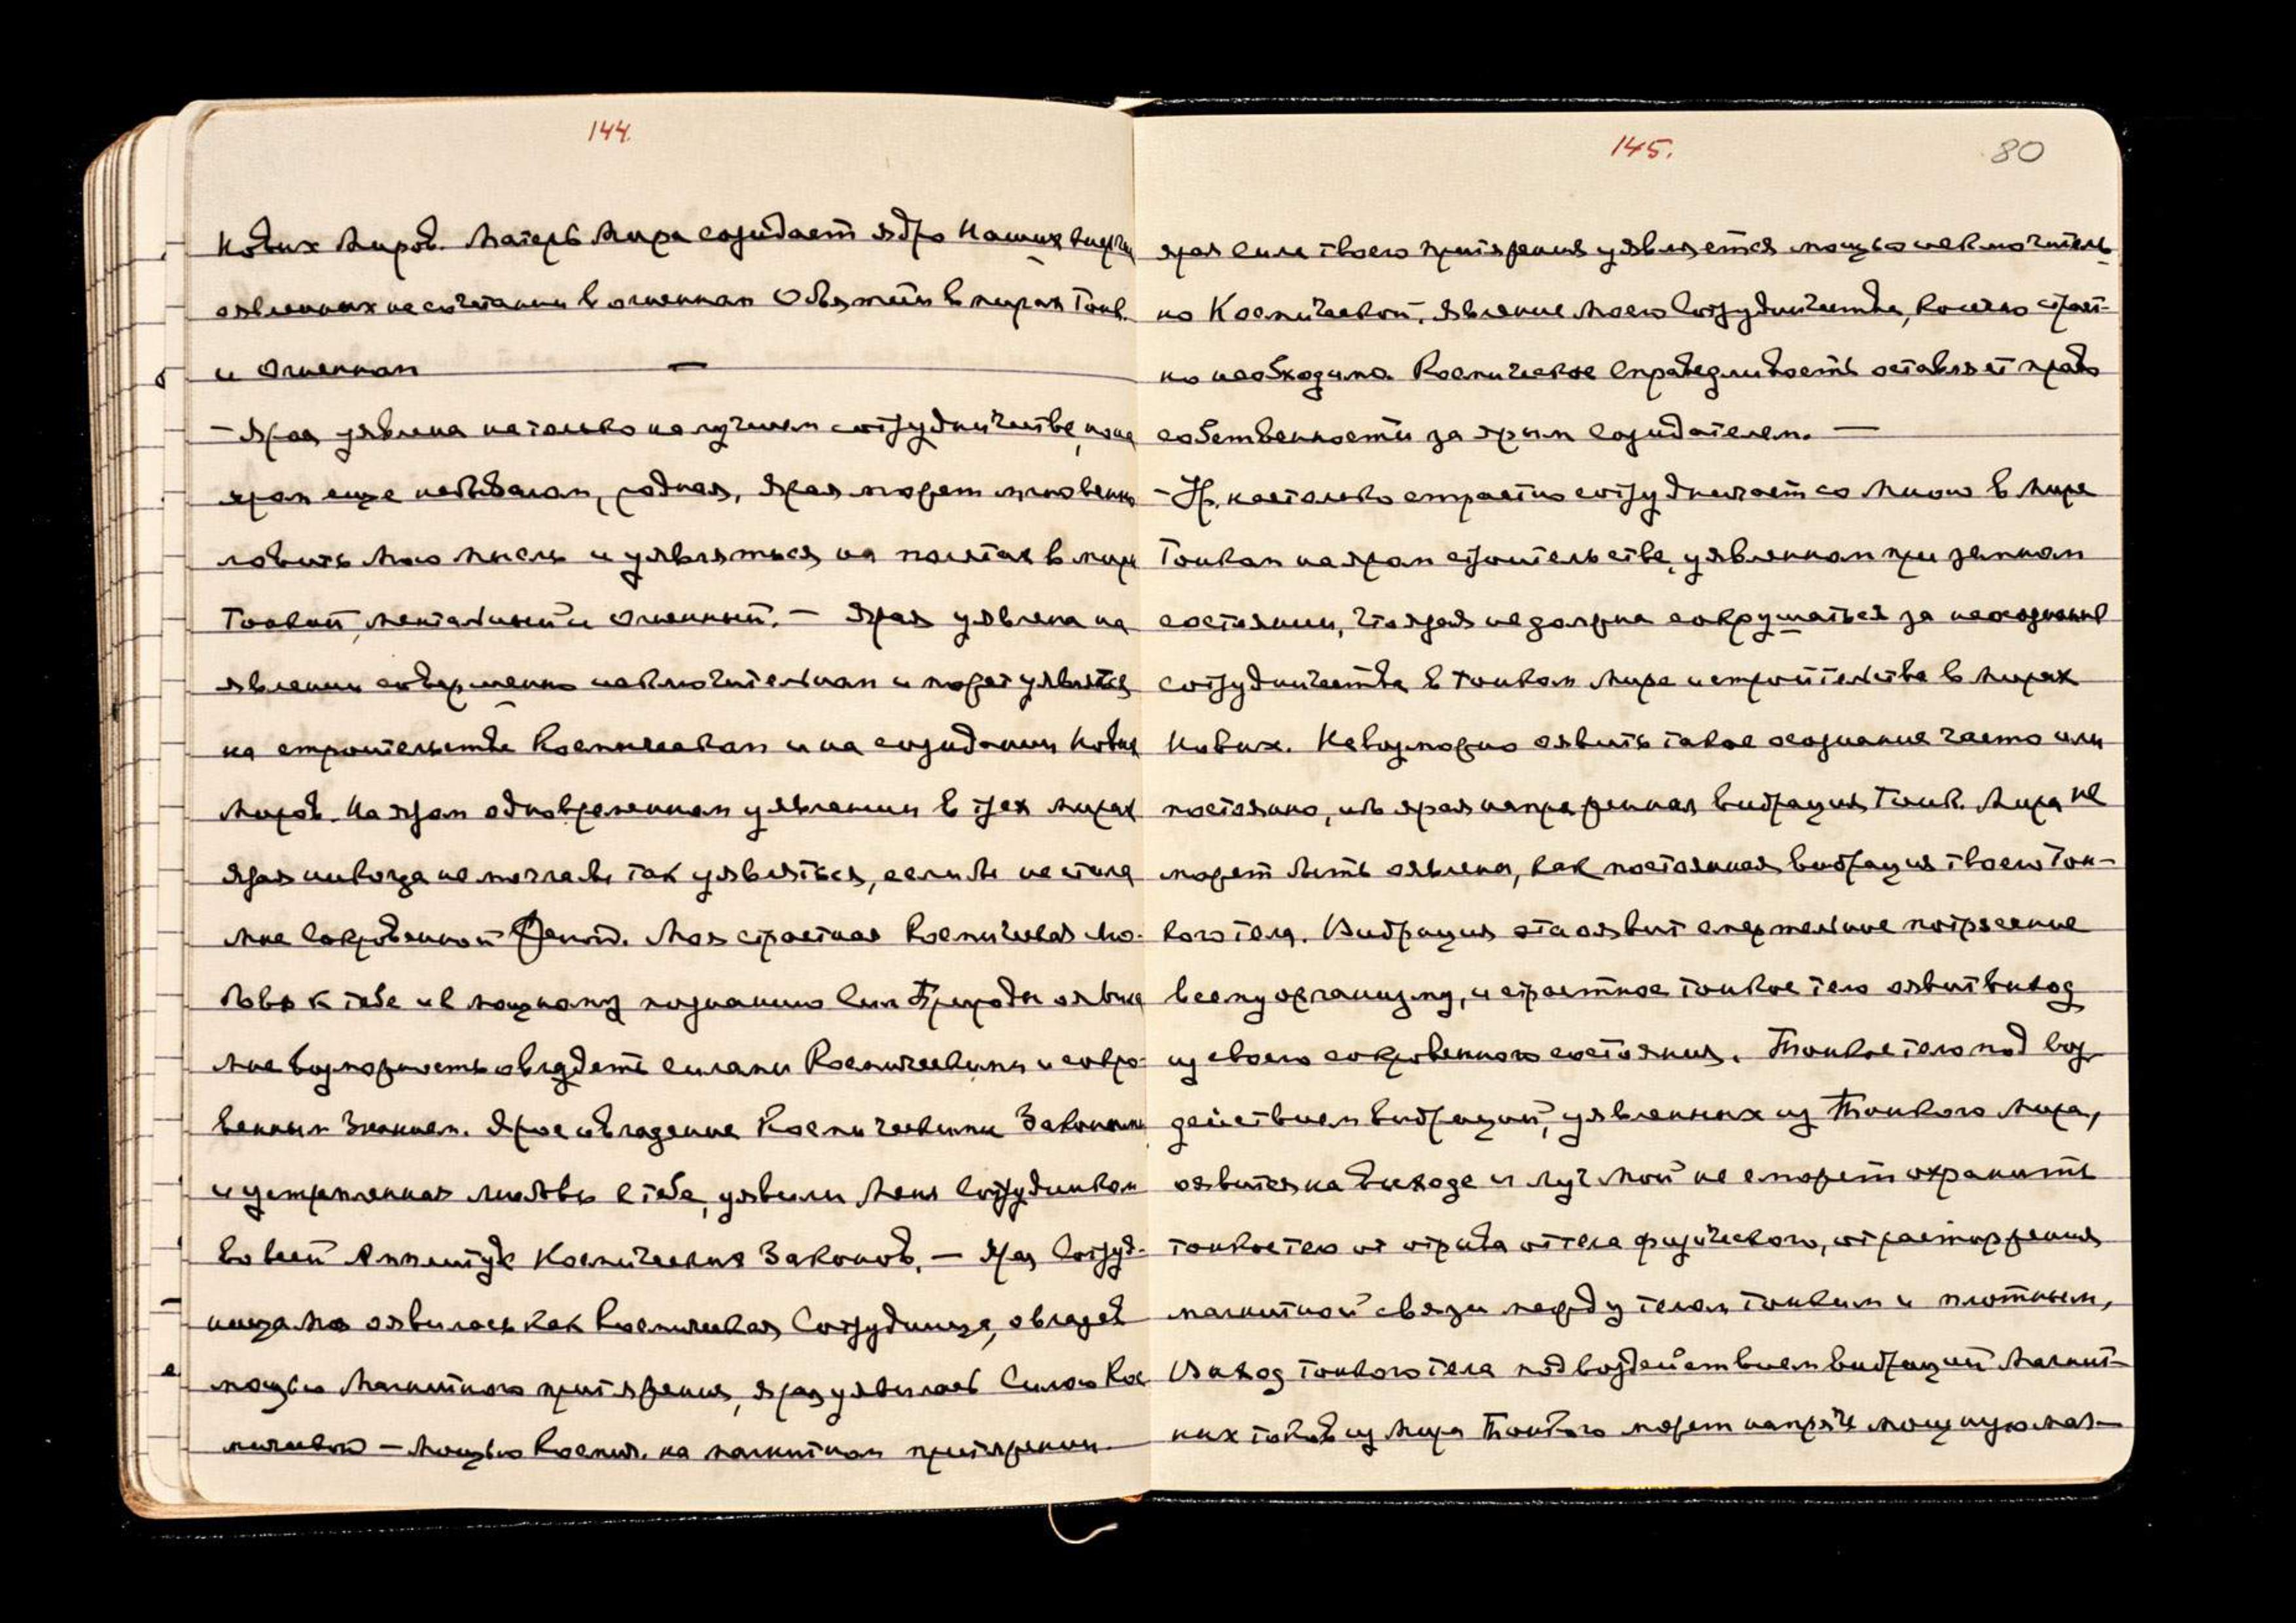 144.
Новых Миров. Матерь Мира созидает ядро Наших энергий
явленных на сочетании в огненном Объятии в мирах Тонк.
и Огненном —
— Ярая уявлена не только на лучшем сотрудничестве, но на
яром еще небывалом, родная, ярая может мгновенно
ловить Мою мысль и уявляться на полётах в миры
Тонкий, ментальный и огненный. — Ярая уявлена на
явлении совершенно исключительном и может уявиться
на строительстве Космическом и на созидании Новых
Миров. На яром одновременном уявлении в трех мирах
ярая никогда не могла бы так уявляться, если бы не стала
Мне Сокровенной Женой. Моя страстная Космическая Лю-
бовь к тебе и к мощному познанию Сил Природы явила
Мне возможность овладеть силами Космическими и сокро-
венным Знанием. Ярое овладение Космическими Законами
и устремленная любовь к тебе, уявили Меня Сотрудником
во всей Амплитуде Космических Законов. — Ярая Сотруд-
ница Моя явилась как Космическая Сотрудница, овладев
мощью Магнитного притяжения, ярая уявилась Силою Кос
мической — Мощью Космич. на магнитном притяжении
145.
80
ярая сила твоего притяжения уявляется мощью исключитель
но Космической. Явление Моего Сотрудничества, конечно страст-
но необходимо. Космическая Справедливость оставляет право
собственности за ярым созидателем. —
— Ур. настолько страстно сотрудничает со Мною в Мире
Тонком на яром строительстве, уявленном при земном
состоянии, что ярая не должна сокрушаться за неосознание
сотрудничества в Тонком Мире и строительства в Мирах
Новых. Невозможно явить такое осознание часто или
постоянно, ибо ярая напряженная вибрация Тонк. Мира не
может быть явлена, как постоянная вибрация твоего Тон-
кого тела. Вибрация эта явит смертельное потрясение
всему организму, и страстное тонкое тело явит выход
из своего сокровенного состояния. Тонкое тело под воз
действием вибраций, уявленных из Тонкого Мира,
явится на выходе и луч Мой не сможет охранить
тонкое тело от отрыва от тела физического, от расторжения
магнитной связи между телом тонким и плотным,
Выход тонкого тела под воздействием вибраций Магнит-
ных токов из Мира Тонкого может напрячь мощную маг-